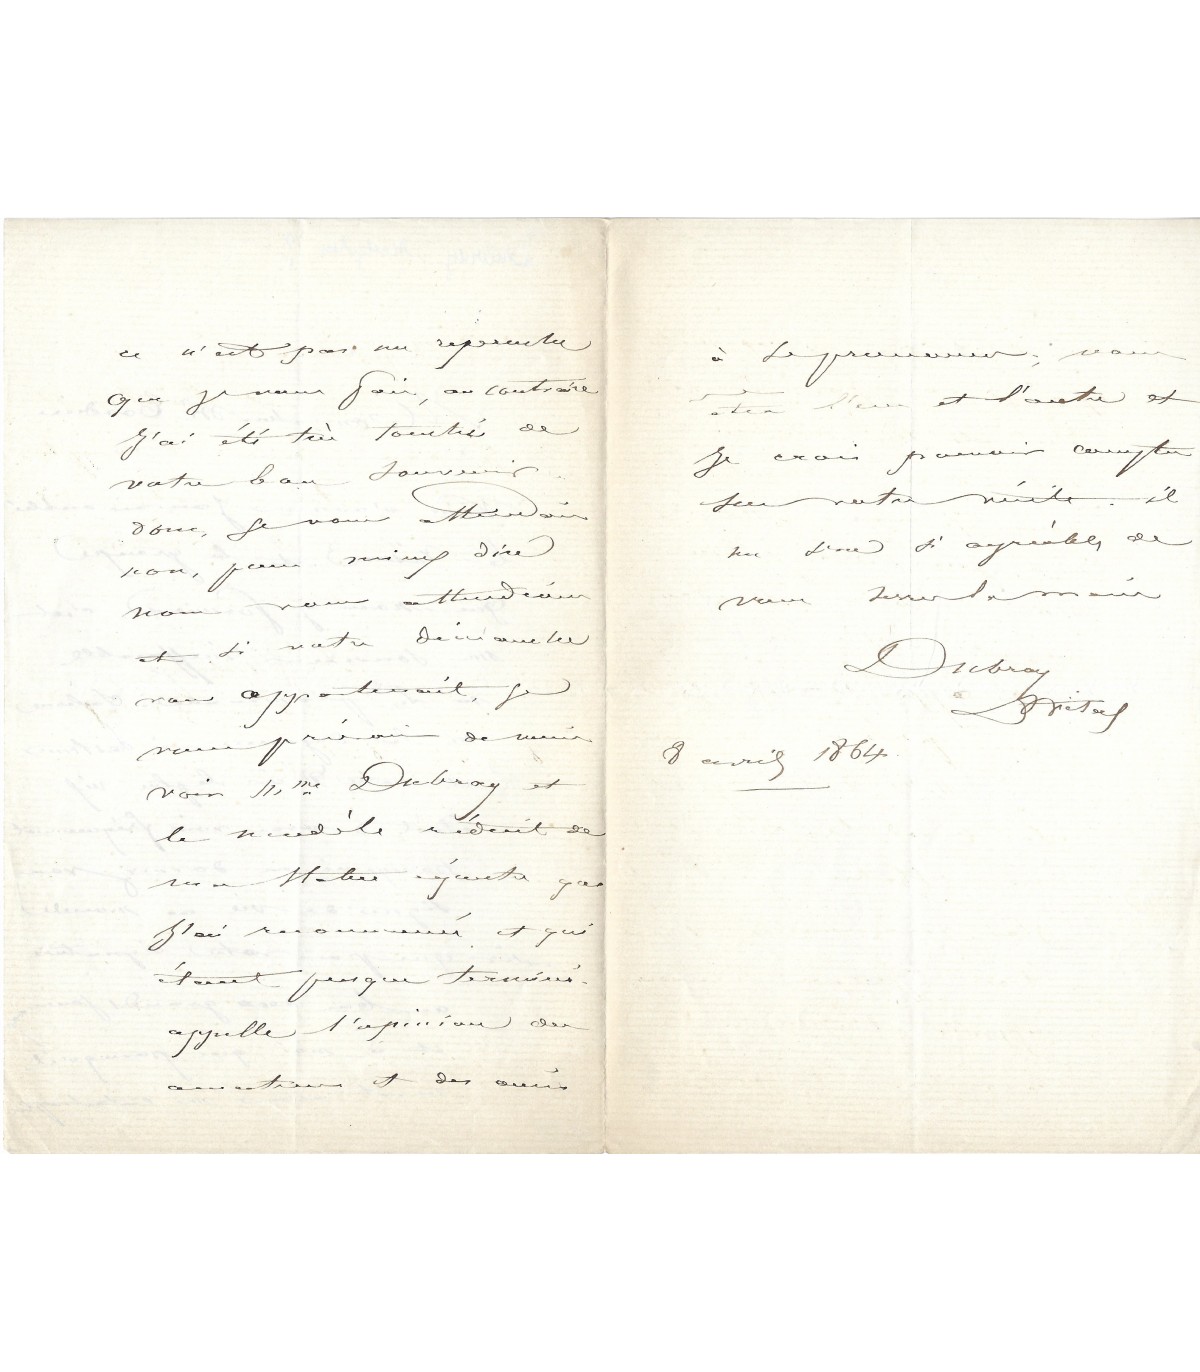 ce n'est pas un reproche
que je vous fais, au contraire
j'ai été très touché de
votre bon souvenir.
donc, je vous attendais
non, pour mieux dire
nous vous attendions
et si votre dimanche
vous appartenait, je
vous prierais de venir
voir Mme Dubray et
le modèle réduit de
ma statue équestre que
j'ai recommencé et qui
étant presque terminé.
appelle l'opinion des
amateurs et des amis
à se prononcer; vous
êtes l'un et l'autre et
je crois pouvoir compter
sur votre visite. il
me sera si agréable de
vous serrer la main
Dubray
8 avril 1864